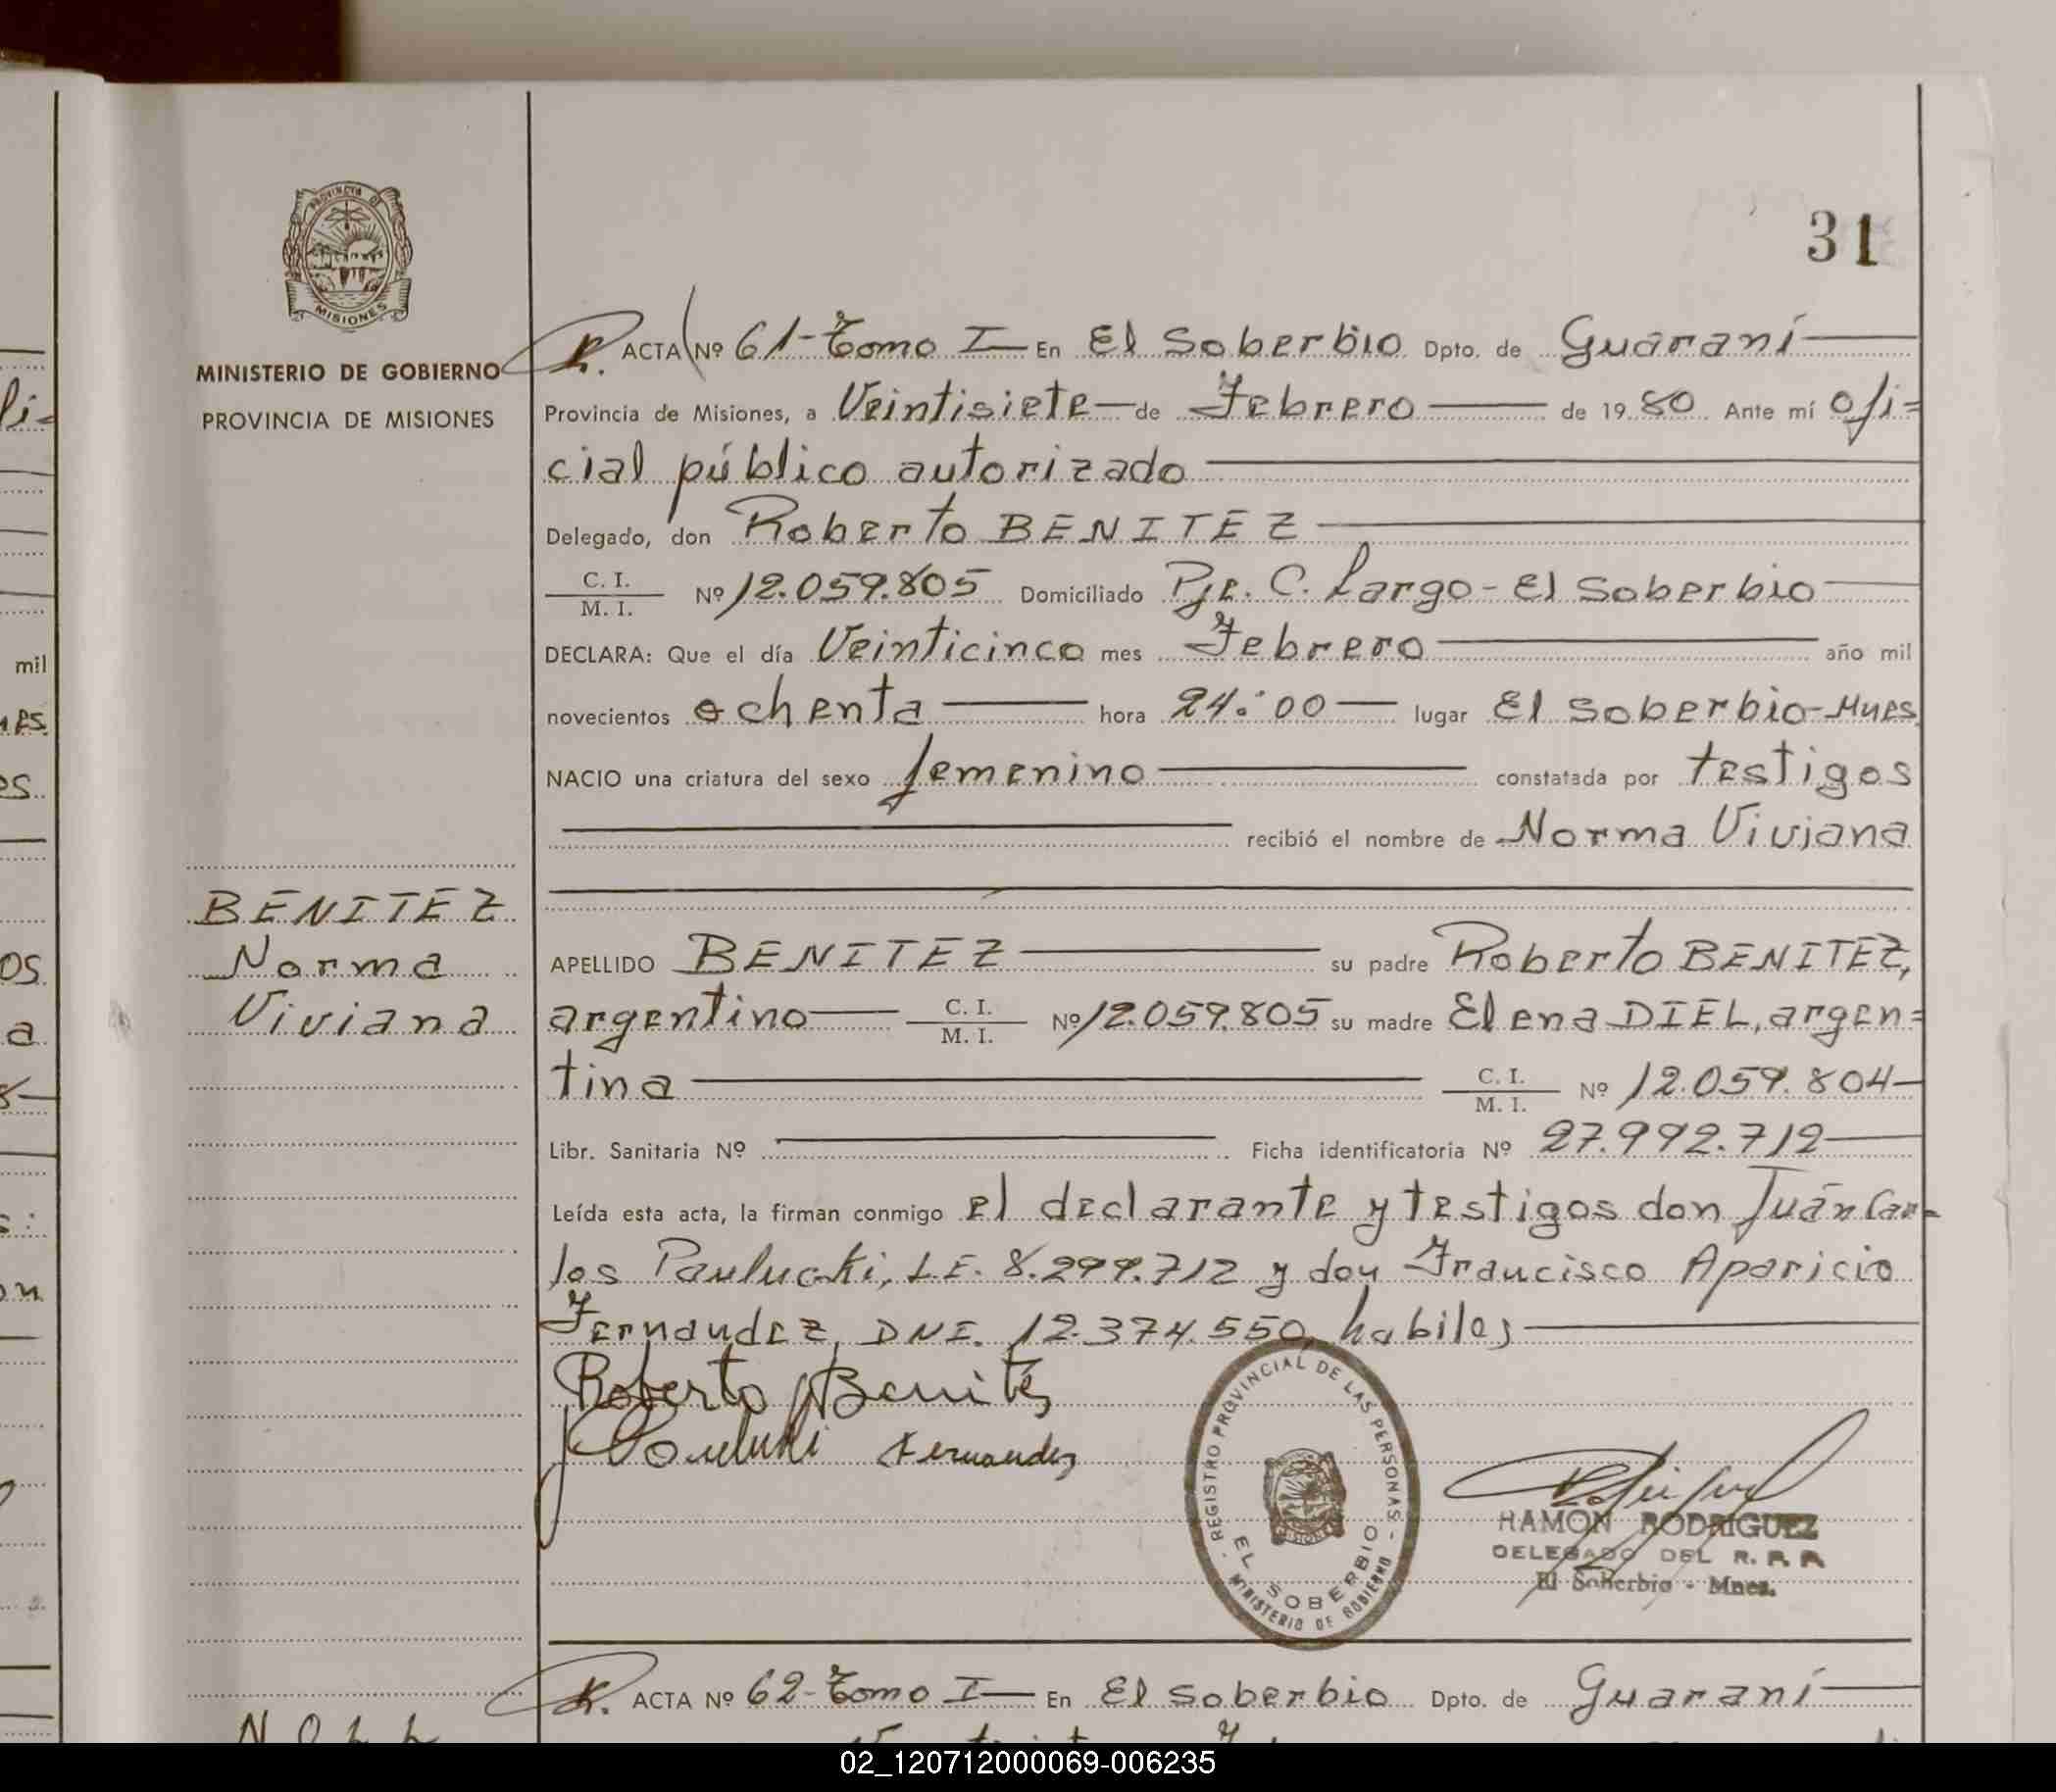 31
PROVINCIA DE
MISIONES
MINISTERIO DE GOBIERNO
PROVINCIA DE MISIONES
ACTA Nº 61-Tomo I En El Soberbio Dpto. de Guaraní
Provincia de Misiones, a Veintisiete de Febrero de 1980 Ante mí ofi=
cial público autorizado
Delegado, don Roberto BENITEZ
C. I.
M. I. Nº 12.059.805 Domiciliado Pje. C. Largo - El Soberbio
DECLARA: Que el día Veinticinco mes Febrero año mil
novecientos ochenta hora 24:00 lugar El Soberbio-Mnes.
NACIO una criatura del sexo femenino constatada por testigos
recibió el nombre de Norma Viviana
BENITEZ
Norma
Viviana
APELLIDO BENITEZ su padre Roberto BENITEZ,
argentino C. I. M. I. Nº 12.059.805 su madre Elena DIEL, argen=
tina C. I. M. I. Nº 12.059.804
Libr. Sanitaria Nº Ficha identificatoria Nº 27.992.712
Leída esta acta, la firman conmigo el declarante y testigos don Juán Car=
los Paulucki, L.E. 8.299.712 y don Francisco Aparicio
Fernandez, DNI. 12.374.550, habiles
Roberto Benitez
Paulucki Fernandez
REGISTRO PROVINCIAL DE LAS PERSONAS - MINISTERIO DE GOBIERNO
EL SOBERBIO
RAMON RODRIGUEZ
DELEGADO DEL R. P. P.
El Soberbio - Mnes.
ACTA Nº 62-Tomo I En El Soberbio Dpto. de Guaraní
02_120712000069-006235